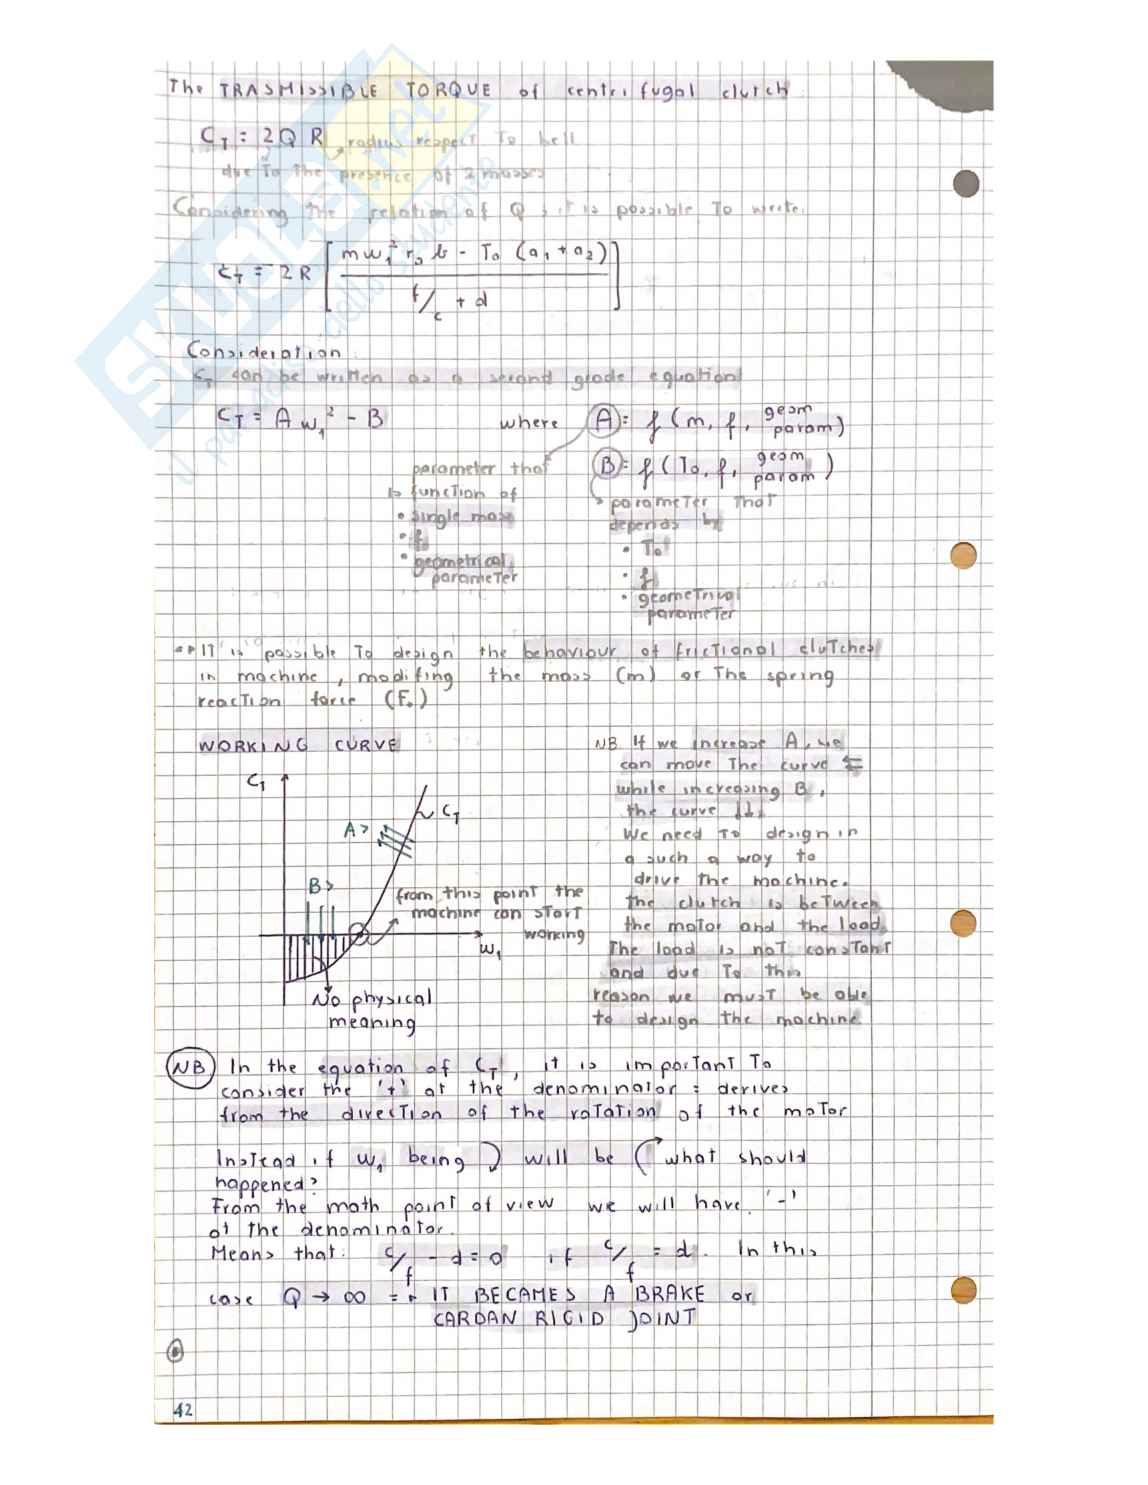 The TRASMISSIBLE TORQUE of centrifugal clutch
C_T = 2 Q R radius respect to bell
due to the presence of 2 masses
Considering the relation of Q, it is possible to write.
C_T = 2R [ (m w_1^2 r_3 b - T_0 (a_1 + a_2)) / (f/c + d) ]
Consideration
C_T can be written as a second grade equation
C_T = A w_1^2 - B where A = f (m, f, geom param)
B = f (T_0, f, geom param)
parameter that
is function of
• single mass
• f
• geometrical
parameter
parameter that
depends by
• T_0
• f
• geometrical
parameter
IT is possible to design the behaviour of frictional clutches
in machine, modifing the mass (m) or the spring
reaction force (F_0)
WORKING CURVE
C_T
C_T
A >
B >
from this point the
machine can start
working
w_1
No physical
meaning
NB If we increase A, we
can move the curve ⇐
while increasing B,
the curve ↓↓
We need to design in
a such a way to
drive the machine.
the clutch is between
the motor and the load
The load is not constant
and due to this
reason we must be able
to design the machine
NB In the equation of C_T, it is important to
consider the '+' at the denominator: derives
from the direction of the rotation of the motor
Instead if w_1 being ⤵ will be ↱ what should
happened?
From the math point of view we will have '-'
at the denominator.
Means that: c/f - d = 0 if c/f = d. In this
case Q → ∞ => IT BECAMES A BRAKE or
CARDAN RIGID JOINT
42
SKUOLA.net
il paradiso dello studente